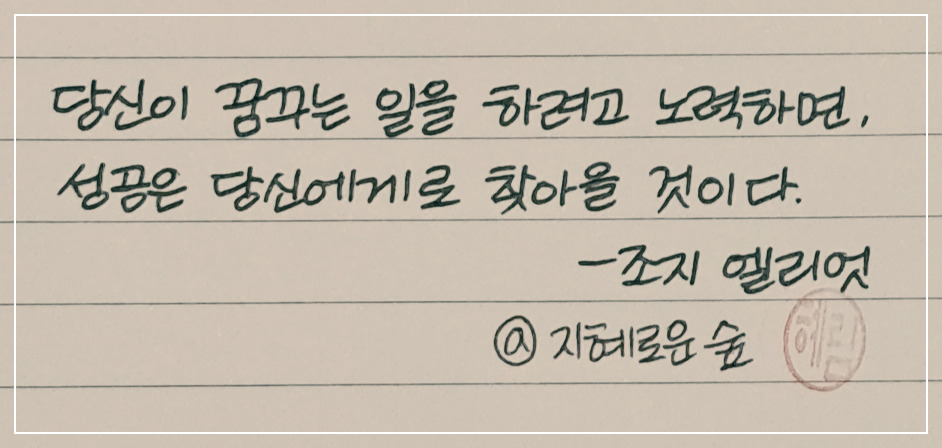 당신이 꿈꾸는 일을 하려고 노력하면,
성공은 당신에게로 찾아올 것이다.
-조지 엘리엇
@ 지혜로운 숲
혜림